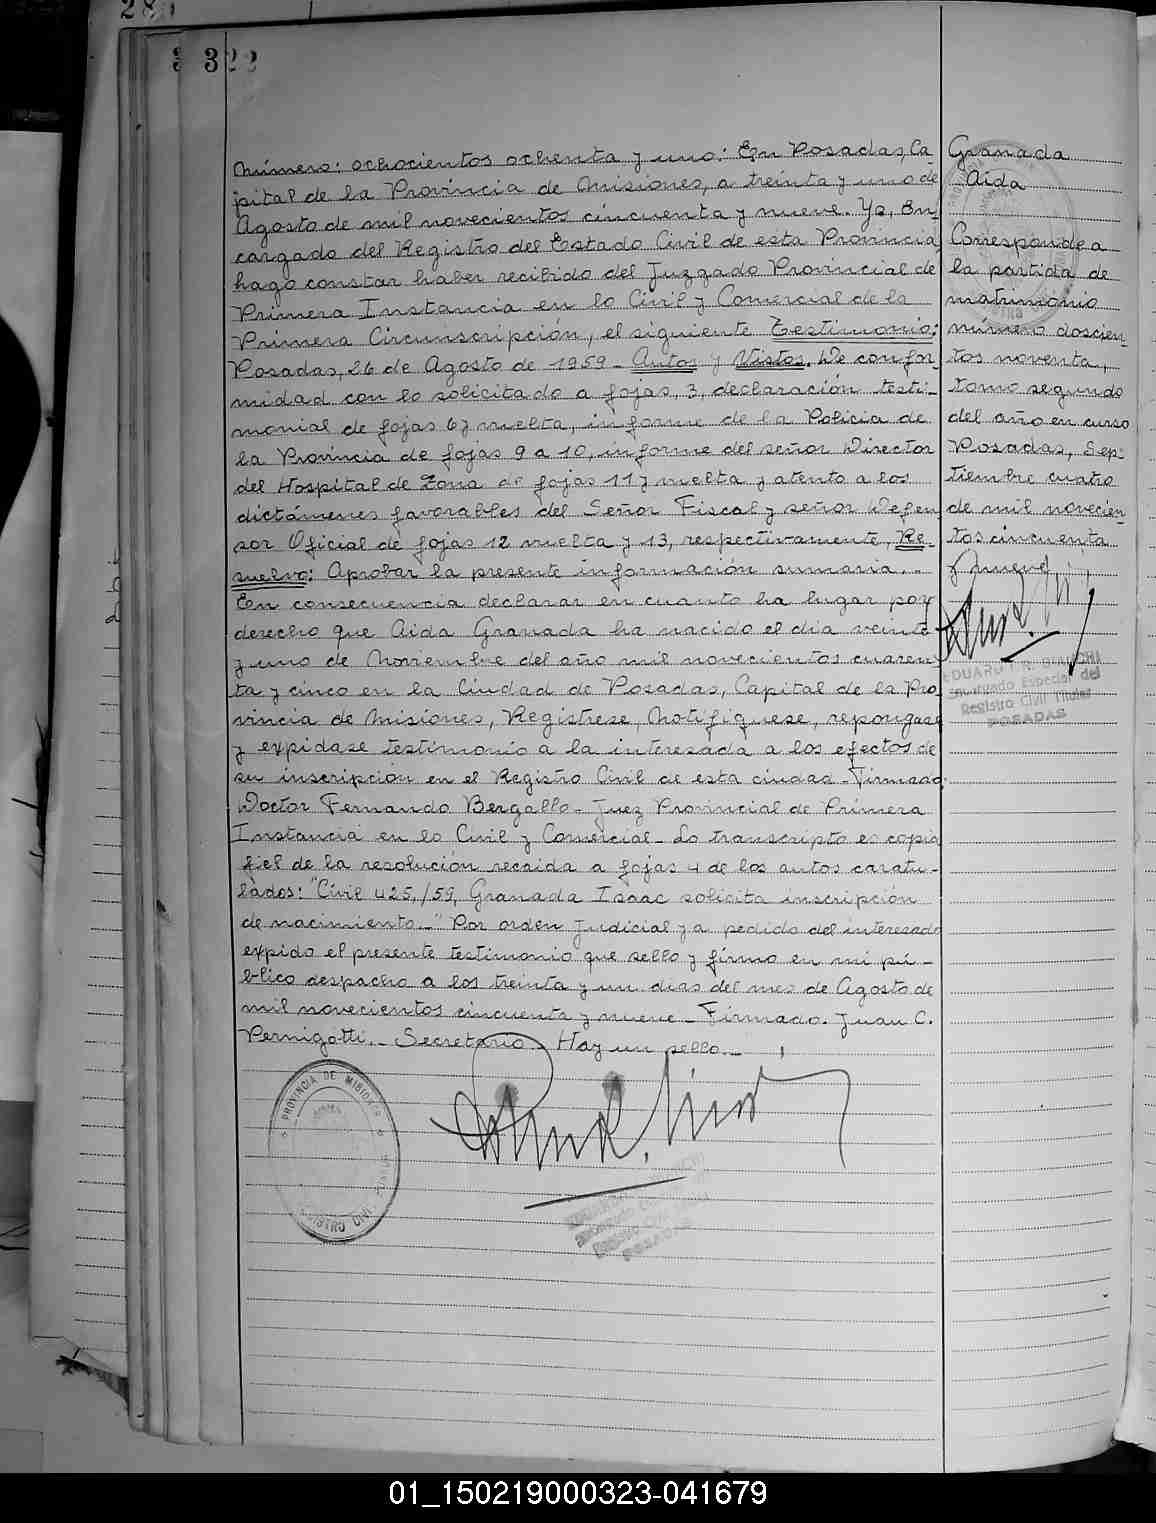 28
322
Número: ochocientos ochenta y uno: En Posadas, Ca-
pital de la Provincia de Misiones, a treinta y uno de
Agosto de mil novecientos cincuenta y nueve. Yo, En-
cargado del Registro del Estado Civil de esta Provincia
hago constar haber recibido del Juzgado Provincial de
Primera Instancia en lo Civil y Comercial de la
Primera Circunscripción, el siguiente Testimonio:
Posadas, 26 de Agosto de 1959 - Autos y Vistos. De confor-
midad con lo solicitado a fojas, 3, declaración testi-
monial de fojas 6 y vuelta, informe de la Policia de
la Provincia de fojas 9 a 10, informe del señor Director
del Hospital de Zona de fojas 11 y vuelta y atento a los
dictámenes favorables del Señor Fiscal y señor Defen
sor Oficial de fojas 12 vuelta y 13, respectivamente, Re-
suelvo: Aprobar la presente información sumaria. -
En consecuencia declarar en cuanto ha lugar por
derecho que Aida Granada ha nacido el dia veinte
y uno de Noviembre del año mil novecientos cuaren-
ta y cinco en la Ciudad de Posadas, Capital de la Pro
vincia de Misiones, Registrese, Notifiquese, repongase
y expidase testimonio a la interesada a los efectos de
su inscripción en el Registro Civil de esta ciudad - Firmado
Doctor Fernando Bergallo - Juez Provincial de Primera
Instancia en lo Civil y Comercial - Lo transcripto es copia
fiel de la resolución recaida a fojas 4 de los autos caratu-
lados: "Civil 425,/59, Granada Isaac solicita inscripción
de nacimiento. -" Por orden Judicial y a pedido del interesado
expido el presente testimonio que sello y firmo en mi pú-
blico despacho a los treinta y un dias del mes de Agosto de
mil novecientos cincuenta y nueve - Firmado. Juan C.
Pernigotti. - Secretario. - Hay un sello. -
Granada
Aida
Corresponde a
la partida de
matrimonio
número doscien-
tos noventa,
tomo segundo
del año en curso
Posadas, Sep-
tiembre cuatro
de mil novecien-
tos cincuenta
y nueve
EDUARDO R. BIANCHI
Encargado Especial del
Registro Civil Titular
POSADAS
PROVINCIA DE MISIONES
REGISTRO CIVIL
POSADAS
01_150219000323-041679